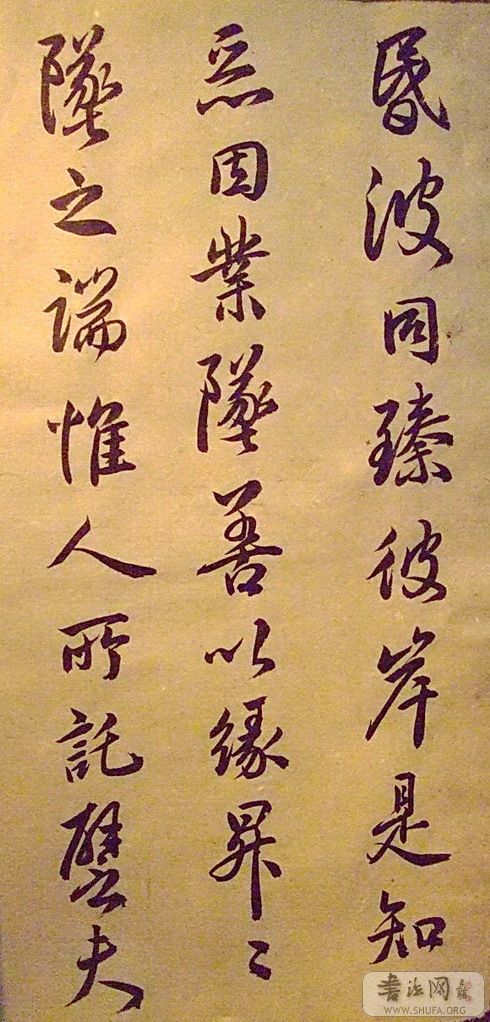 昬波同臻彼岸是知
惡因業墜善以緣昇〻
墜之端惟人所託譬夫
書法网
WWW.SHUFA.ORG